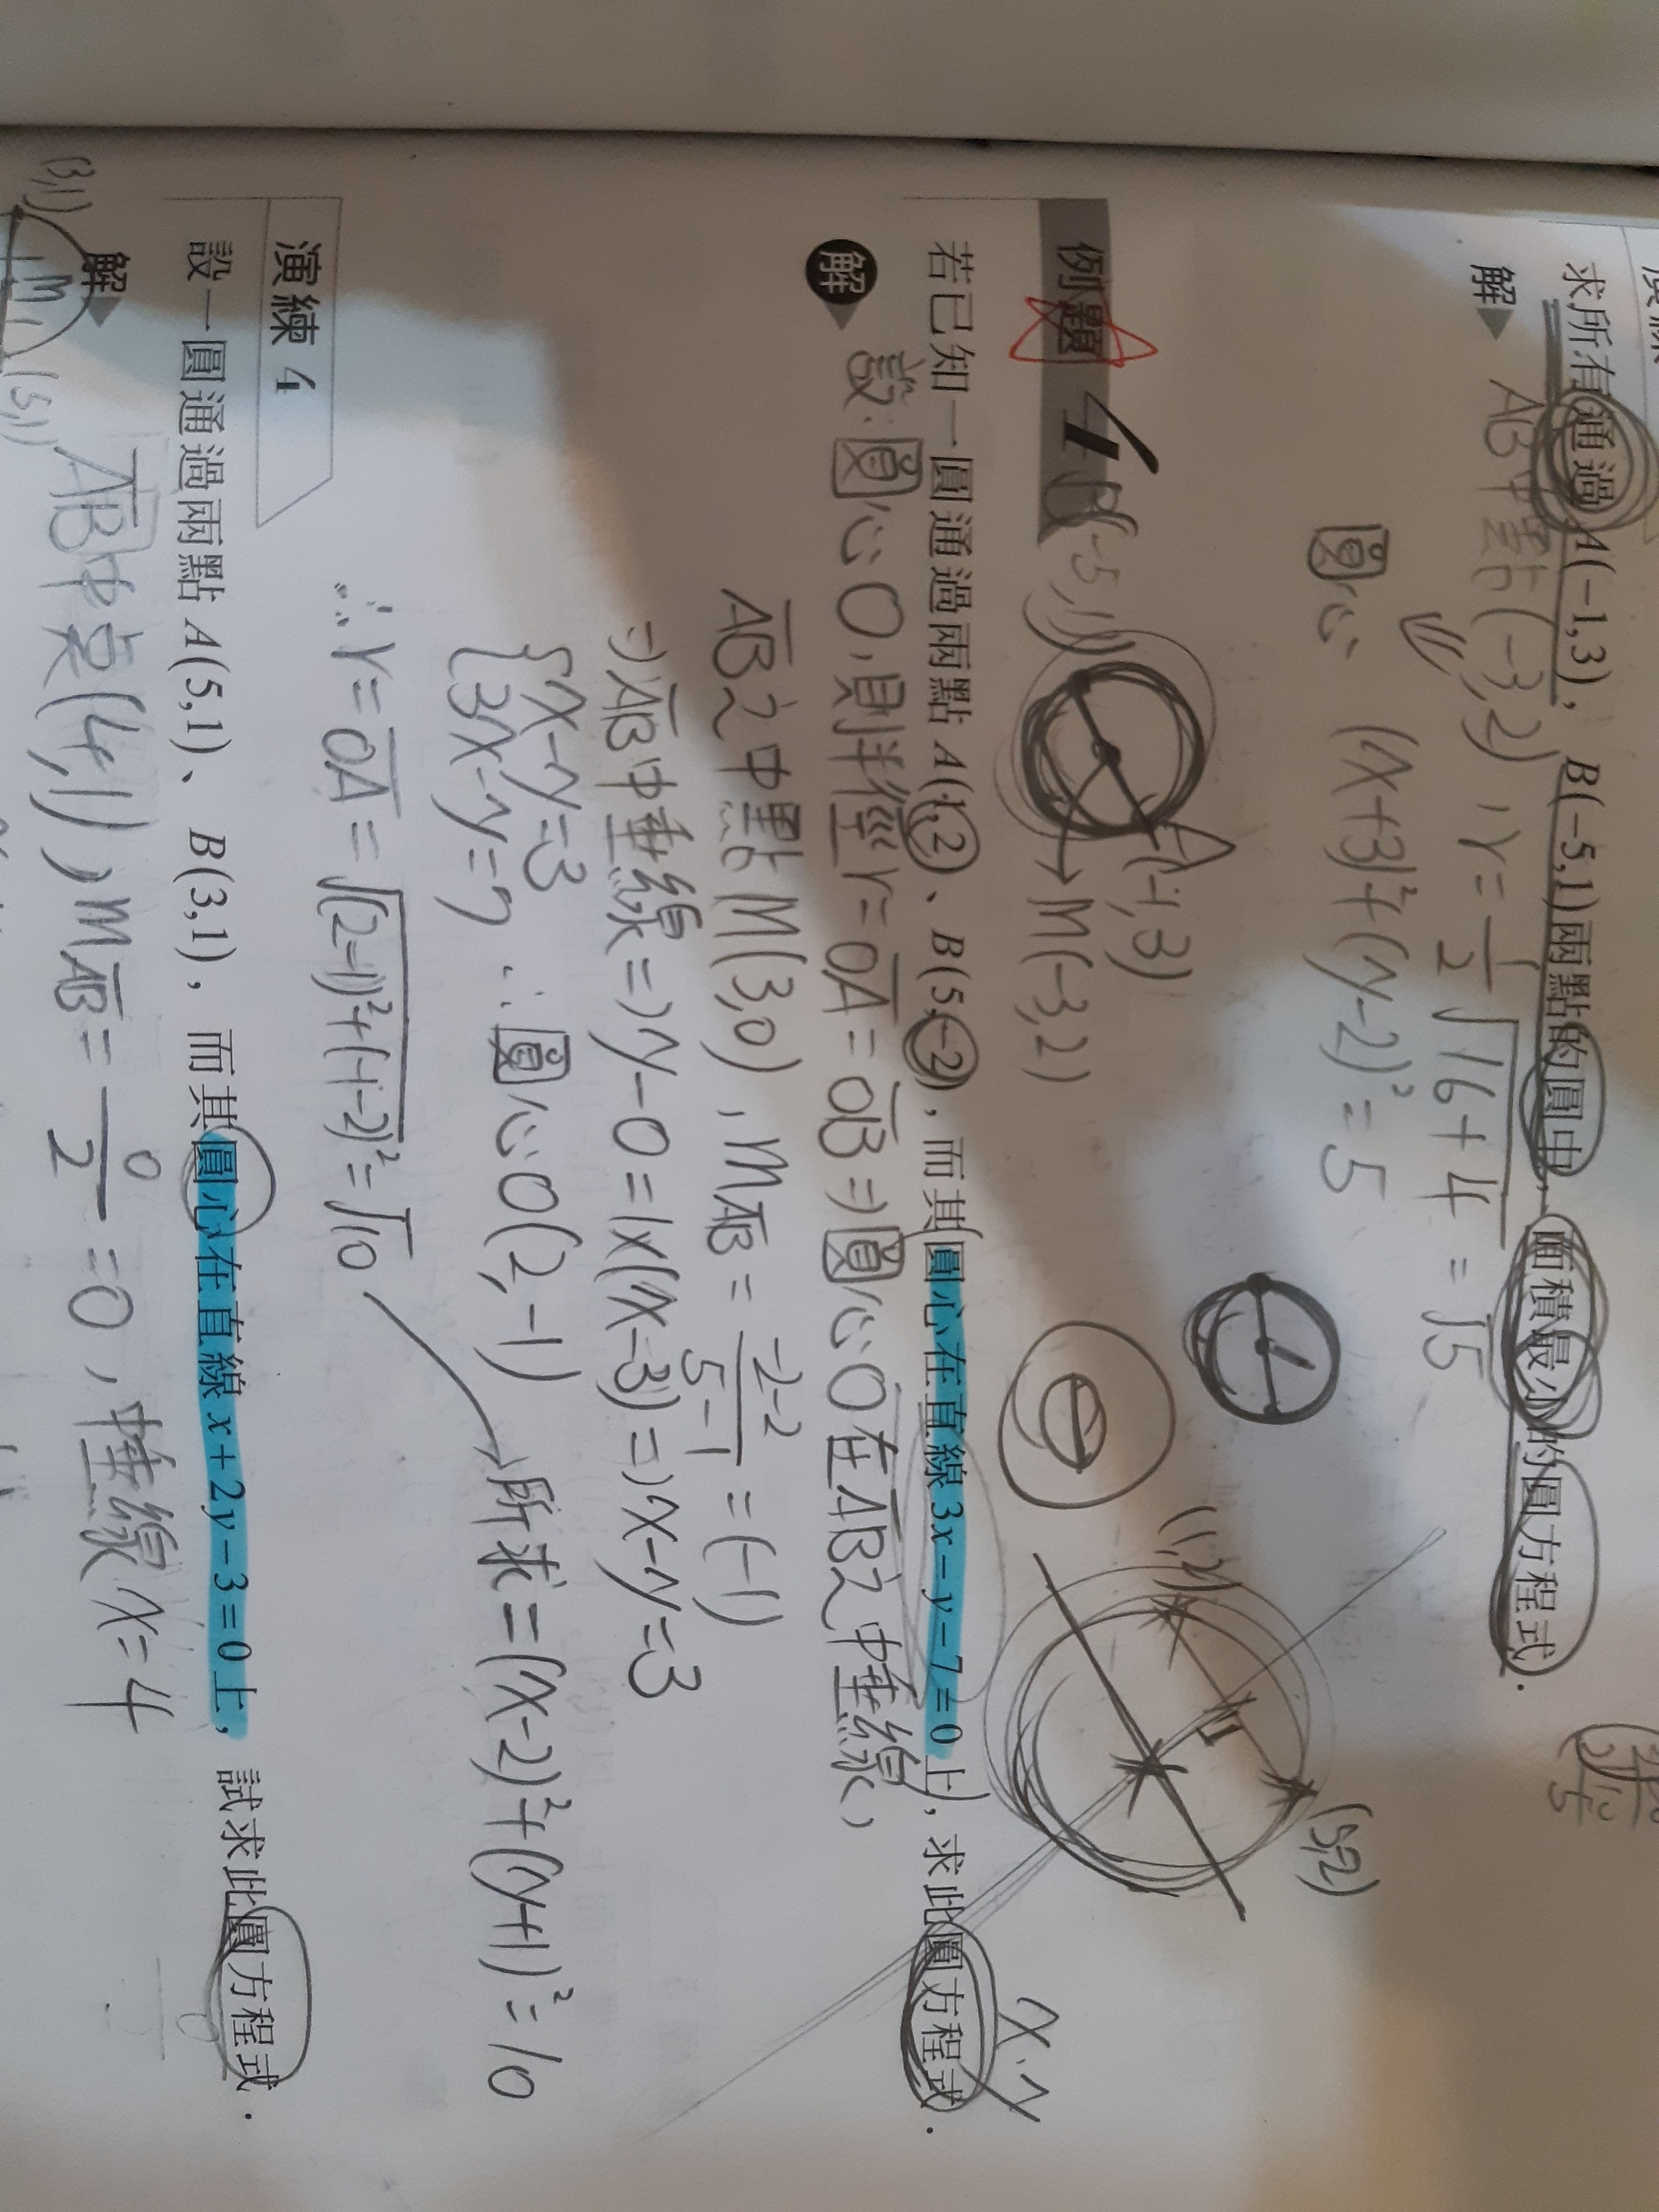 求所有通過 A(−1,3)，B(−5,1)兩點的圓中，面積最小的圓方程式．
解
AB中點(-3,2)，r=1/2√16+4 = √5
圓心 (x+3)²+(y-2)²=5
例題 4
B(-5,1)
A(-1,3)
M(-3,2)
(1,2)
(5,-2)
x.y
若已知一圓通過兩點 A(1,2)、B(5,−2)，而其圓心在直線 3x − y − 7 = 0 上，求此圓方程式．
解
設:圓心O,則半徑r=OA=OB⇒圓心O在AB之中垂線,
AB之中點M(3,0) ，mAB = -2-2/5-1 = (-1)
⇒AB中垂線⇒y-0=1x(x-3)⇒x-y=3
{x-y=3
3x-y=7 ∴圓心O(2,-1)
所求=(x-2)²+(y+1)²=10
∴r=OA=√(2-1)²+(-1-2)²=√10
演練 4
設一圓通過兩點 A(5,1)、B(3,1)，而其圓心在直線 x + 2y − 3 = 0 上，試求此圓方程式．
解
(3,1)
M
(5,1)
AB中点(4,1)、mAB = 0/2 = 0，中垂線x=4